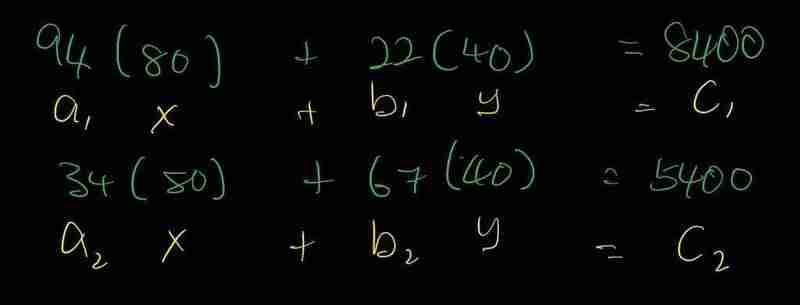 94 (80) + 22 (40) = 8400
a₁ x + b₁ y = C₁
34 (80) + 67 (40) = 5400
a₂ x + b₂ y = C₂